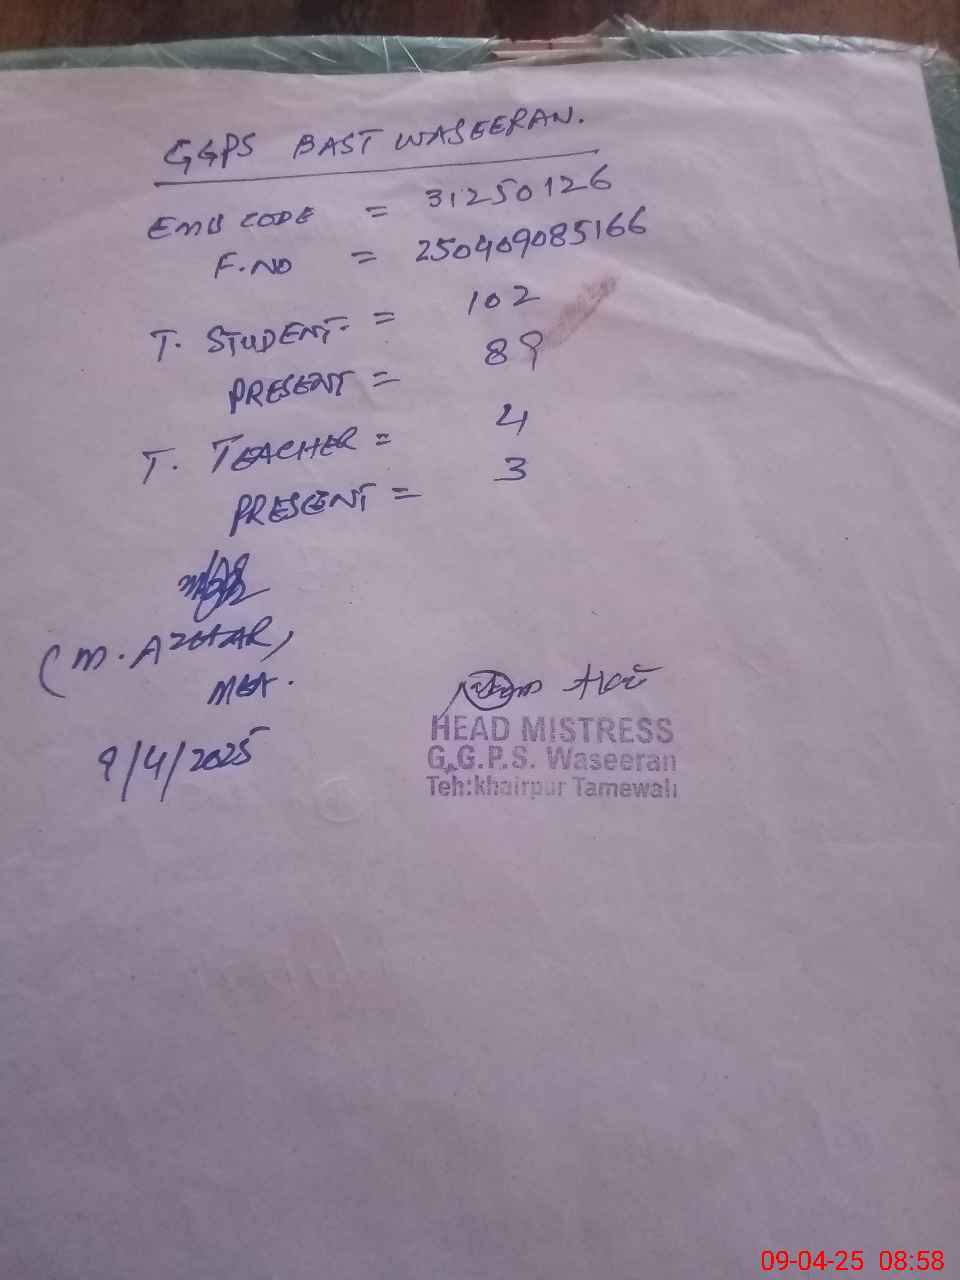 GGPS BAST WASEERAN.
EMIS CODE = 31250126
F.NO = 250409085166
T. STUDENT = 102
PRESENT = 89
T. TEACHER = 4
PRESENT = 3
(M. AZHAR)
MEA.
9/4/2025
HEAD MISTRESS
G.G.P.S. Waseeran
Teh:khairpur Tamewali
09-04-25 08:58